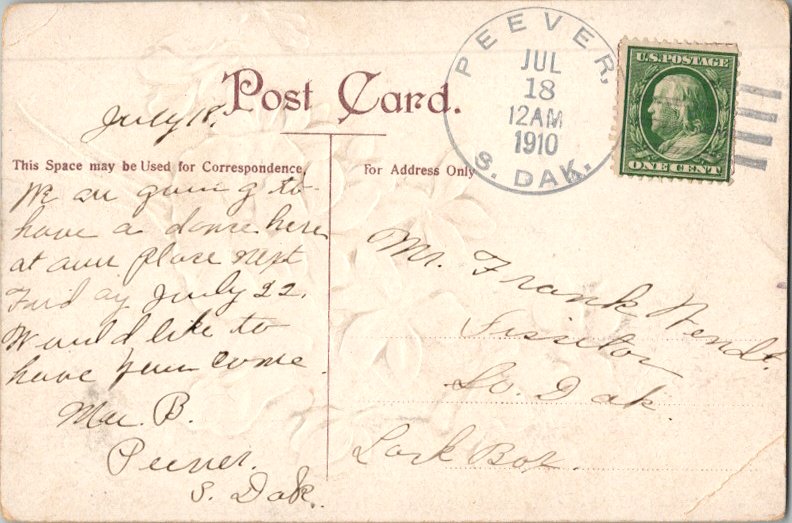 Post Card.
PEEVER,
JUL
18
12AM
1910
S. DAK.
U.S. POSTAGE
ONE CENT
July 18.
This Space may be Used for Correspondence,
For Address Only
We are going to
have a dance here
at our place next
Friday July 22.
Would like to
have you come.
Mae B.
Peever.
S. Dak.
Mr. Frank Wendt.
Sisseton
So. Dak.
Lock Box.